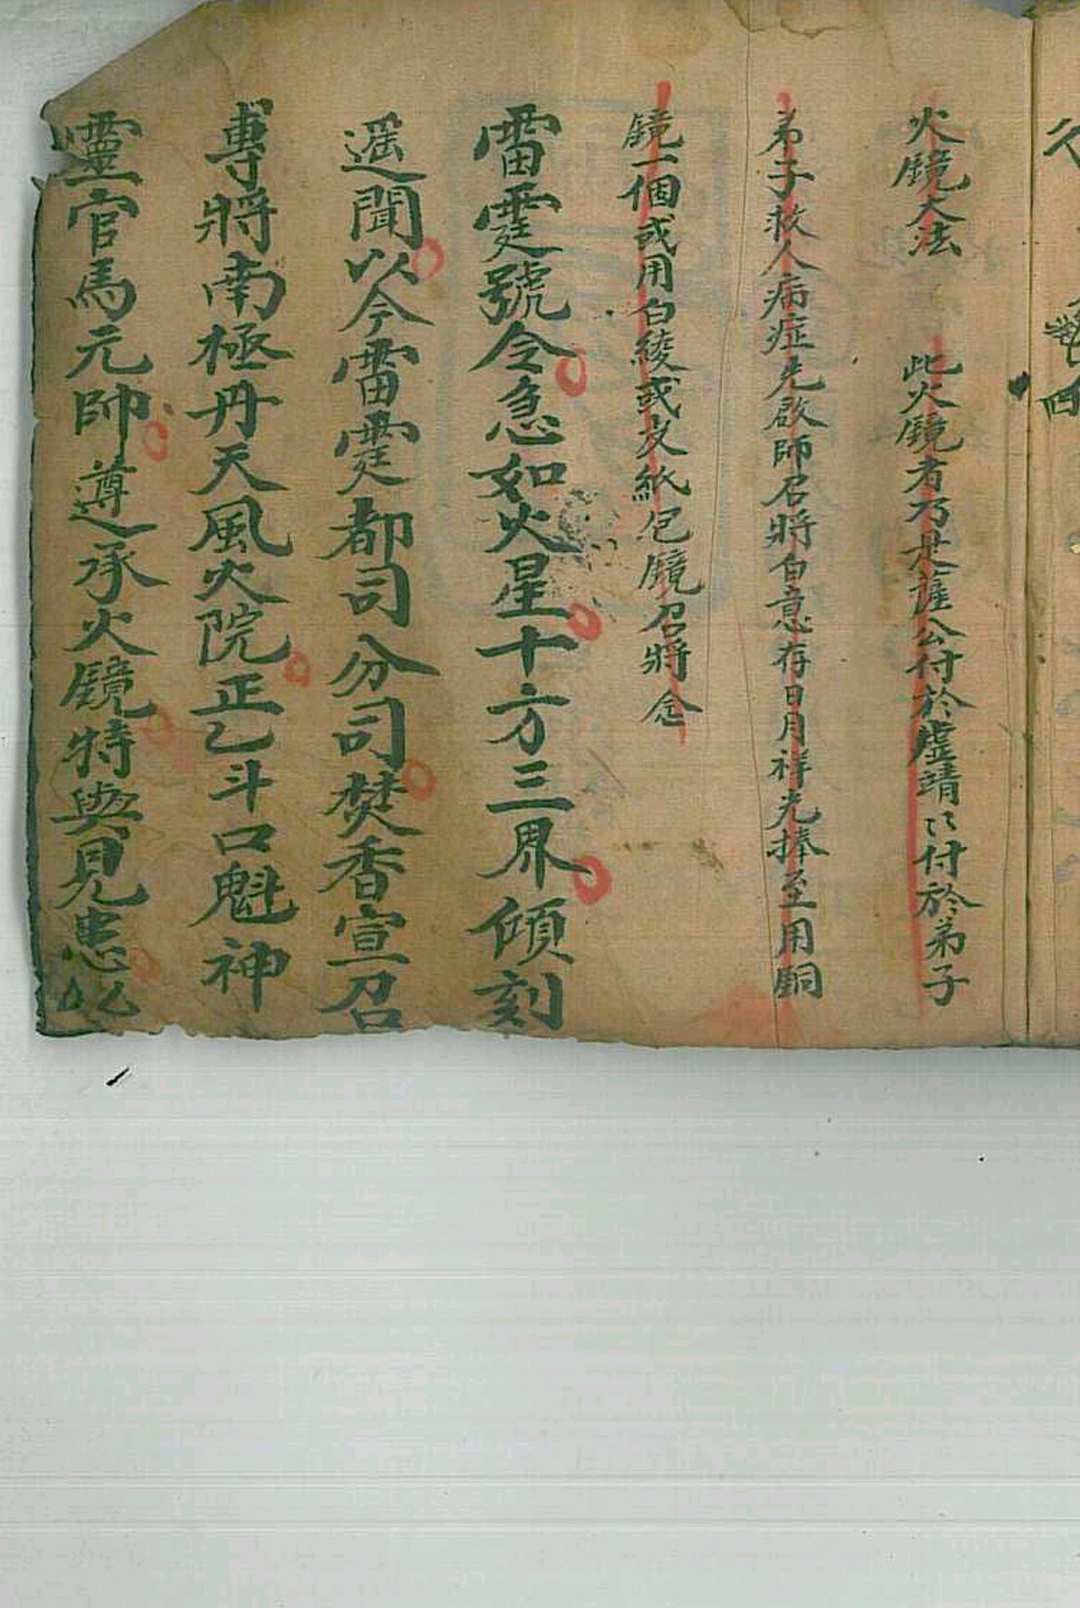 火鏡大法　此火鏡者乃是薩公付於虛靖〻〻付於弟子
弟子救人病症先啟師召將白意存日月祥光捧至用銅
鏡一個或用白綾或文紙包鏡召將念
雷霆號令急如火星十方三界傾刻
遥聞以今雷霆都司分司焚香宣召
專將南極丹天風火院正乙斗口魁神
靈官馬元帥遵承火鏡特與見患